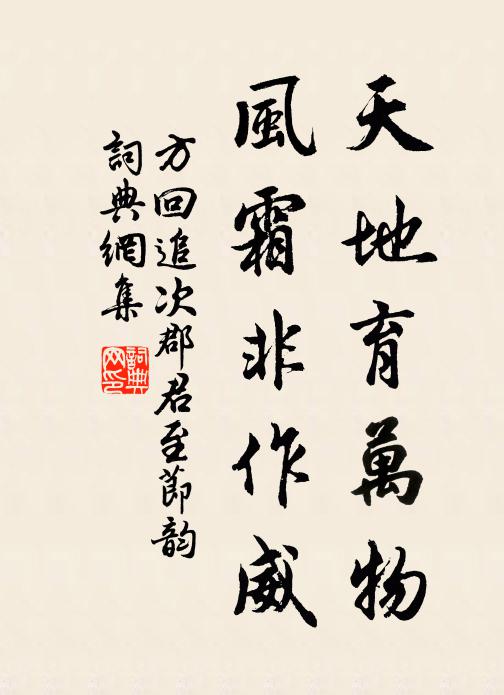 天地育萬物
風霜非作威
方回追次郡君至節韵
詞典網集
詞典网印